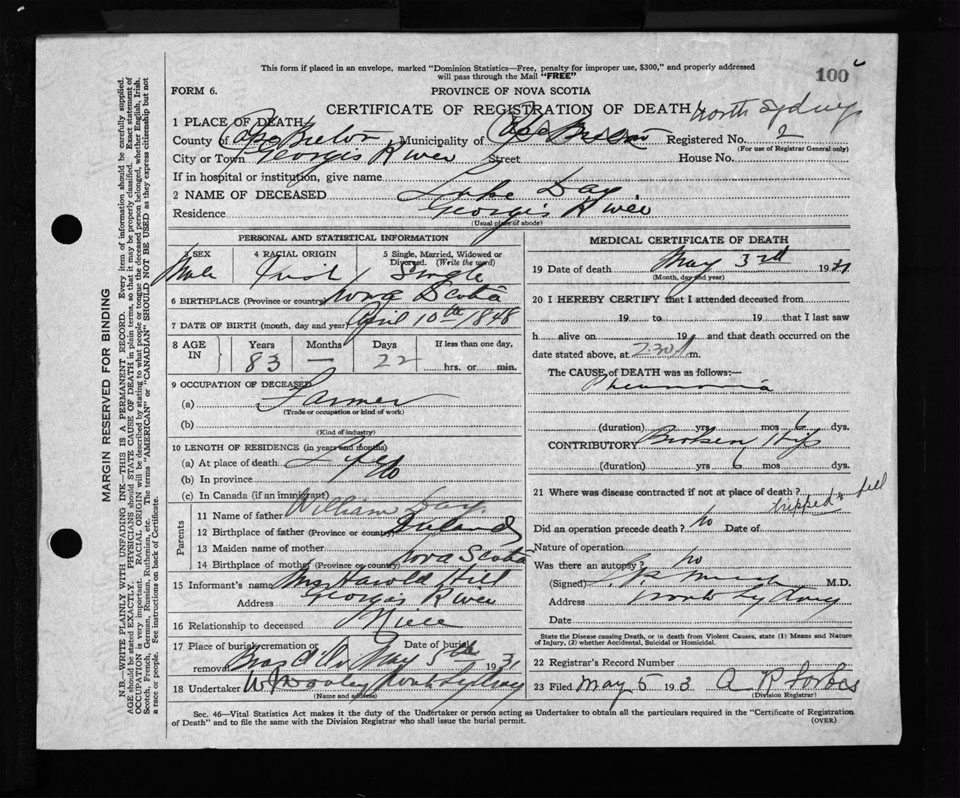 This form if placed in an envelope, marked "Dominion Statistics—Free, penalty for improper use, $300," and properly addressed
will pass through the Mail "FREE"
100
FORM 6.
PROVINCE OF NOVA SCOTIA
CERTIFICATE OF REGISTRATION OF DEATH North Sydney
1 PLACE OF DEATH
County of Cape Breton Municipality of Cape Breton Registered No. 2
(For use of Registrar General only)
City or Town Georges River Street House No.
If in hospital or institution, give name
2 NAME OF DECEASED Luke Day
Residence Georges River
(Usual place of abode)
PERSONAL AND STATISTICAL INFORMATION
3 SEX 4 RACIAL ORIGIN 5 Single, Married, Widowed or Divorced. (Write the word)
Male Irish Single
6 BIRTHPLACE (Province or country) Nova Scotia
7 DATE OF BIRTH (month, day and year) April 10th 1848
8 AGE IN Years Months Days If less than one day,
83 — 22 hrs. or min.
9 OCCUPATION OF DECEASED
(a) Farmer
(Trade or occupation or kind of work)
(b)
(Kind of industry)
10 LENGTH OF RESIDENCE (in years and months)
(a) At place of death Life
(b) In province
(c) In Canada (if an immigrant)
Parents
11 Name of father William Day
12 Birthplace of father (Province or country) Ireland
13 Maiden name of mother
14 Birthplace of mother (Province or country) Nova Scotia
15 Informant's name Mrs Harold Hill
Address Georges River
16 Relationship to deceased Niece
17 Place of burial, cremation or removal Date of burial
Bras d'Or May 5th 1931
18 Undertaker North Sydney
(Name and address)
MEDICAL CERTIFICATE OF DEATH
19 Date of death May 3rd 1931
(Month, day and year)
20 I HEREBY CERTIFY that I attended deceased from
19 to 19 that I last saw
h alive on 19 and that death occurred on the
date stated above, at 230 m.
The CAUSE of DEATH was as follows:—
Pneumonia
(duration) yrs mos 6 dys.
CONTRIBUTORY Broken Hip
(duration) yrs 6 mos dys.
21 Where was disease contracted if not at place of death?
tripped & fell
Did an operation precede death? No Date of
Nature of operation
Was there an autopsy? No
(Signed) M.D.
Address North Sydney
Date
State the Disease causing Death, or in death from Violent Causes, state (1) Means and Nature
of Injury, (2) whether Accidental, Suicidal or Homicidal.
22 Registrar's Record Number
23 Filed May 5 193 A R Forbes
(Division Registrar)
Sec. 46—Vital Statistics Act makes it the duty of the Undertaker or person acting as Undertaker to obtain all the particulars required in the "Certificate of Registration
of Death" and to file the same with the Division Registrar who shall issue the burial permit.
(OVER)
MARGIN RESERVED FOR BINDING
N.B.—WRITE PLAINLY WITH UNFADING INK—THIS IS A PERMANENT RECORD. Every item of information should be carefully supplied.
AGE should be stated EXACTLY. PHYSICIANS should STATE CAUSE OF DEATH in plain terms, so that it may be properly classified. Exact statement of
OCCUPATION is very important. RACIAL ORIGIN will be described by stating to what people or tongue the deceased person belonged, whether English, Irish,
Scotch, French, German, Russian, Ruthenian, etc. The terms "AMERICAN" or "CANADIAN" SHOULD NOT BE USED as they express citizenship but not
a race or people. See instructions on back of Certificate.